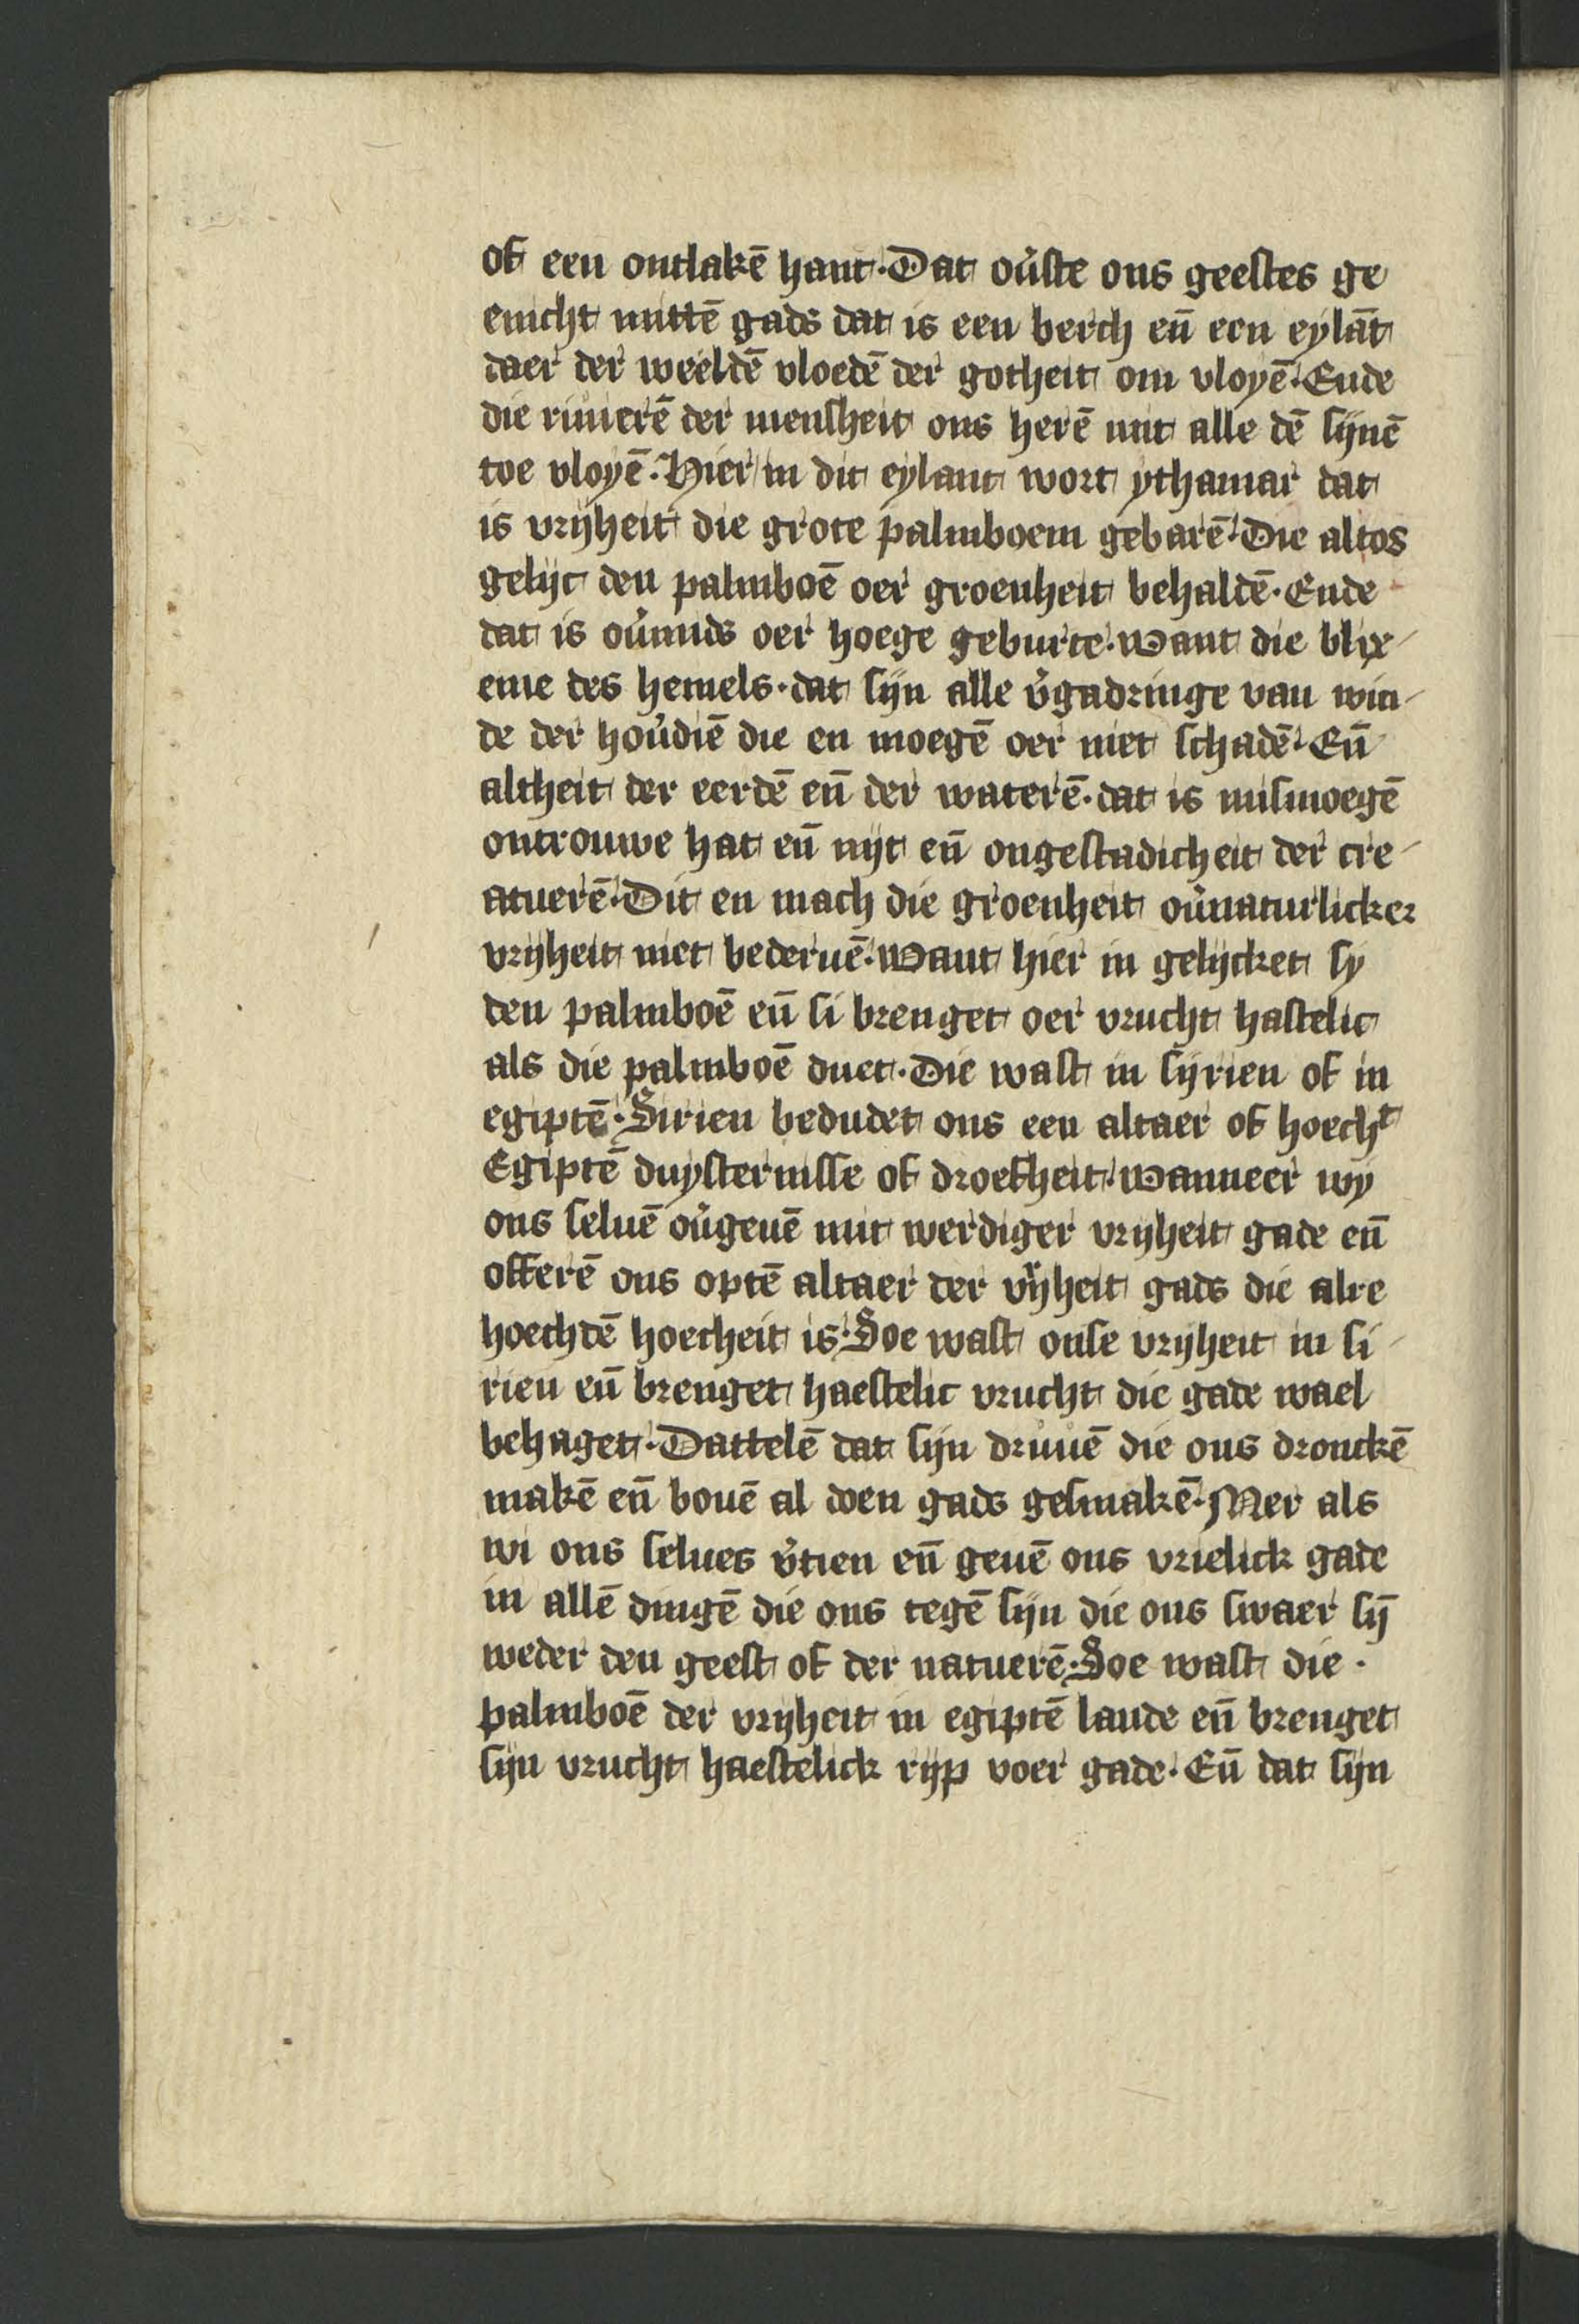 of een ontlakē hant. Dat ou̕ste ons geestes ge
enicht mittē gads dat is een berch en̄ een eylāt
daer der weeldē vloedē der gotheit om vloyē. Ende
die riuierē der mensheit ons herē mit alle dē sijnē
toe vloyē. Hier in dit eylant wort ythamar dat
is vrijheit die grote palmboem gebarē. Die altos
gelijc den palmboē oer groenheit behaldē. Ende
dat is ou̕mids oer hoege geburte. want die blix
eme des hemels. dat sijn alle v̕gadringe van win
de der hou̕diē die en moegē oer niet schadē. En̄
altheit der eerdē en̄ der waterē. dat is mismoegē
ontrouwe hat en̄ nijt en̄ ongestadicheit der cre
atuerē. Dit en mach die groenheit ou̕naturlicker
vrijheit niet bederuē. Want hier in gelijcket sy
den palmboē en̄ si brenget oer vrucht hastelic
als die palmboē duet. Die wast in sijrien of in
egiptē. Sirien bedudet ons een altaer of hoecht
Egiptē duysternisse of droefheit. wanneer wy
ons seluē ou̕geuē mit werdiger vrijheit gade en̄
offerē ons optē altaer der v̕ijheit gads die alre
hoechdē hoecheit is. Soe wast onse vrijheit in si
rien en̄ brenget haestelic vrucht die gade wael
behaget. Dattelē dat sijn druuē die ons dronckē
makē en̄ bouē al doen gads gesmakē. Mer als
wi ons selues v̕tien en̄ geuē ons vrielick gade
in allē dingē die ons tegē sijn die ons swaer sij̄
weder den geest of der natuerē. Soe wast die.
palmboē der vrijheit in egiptē lande en̄ brenget
sijn vrucht haestelick rijp voer gade. En̄ dat sijn